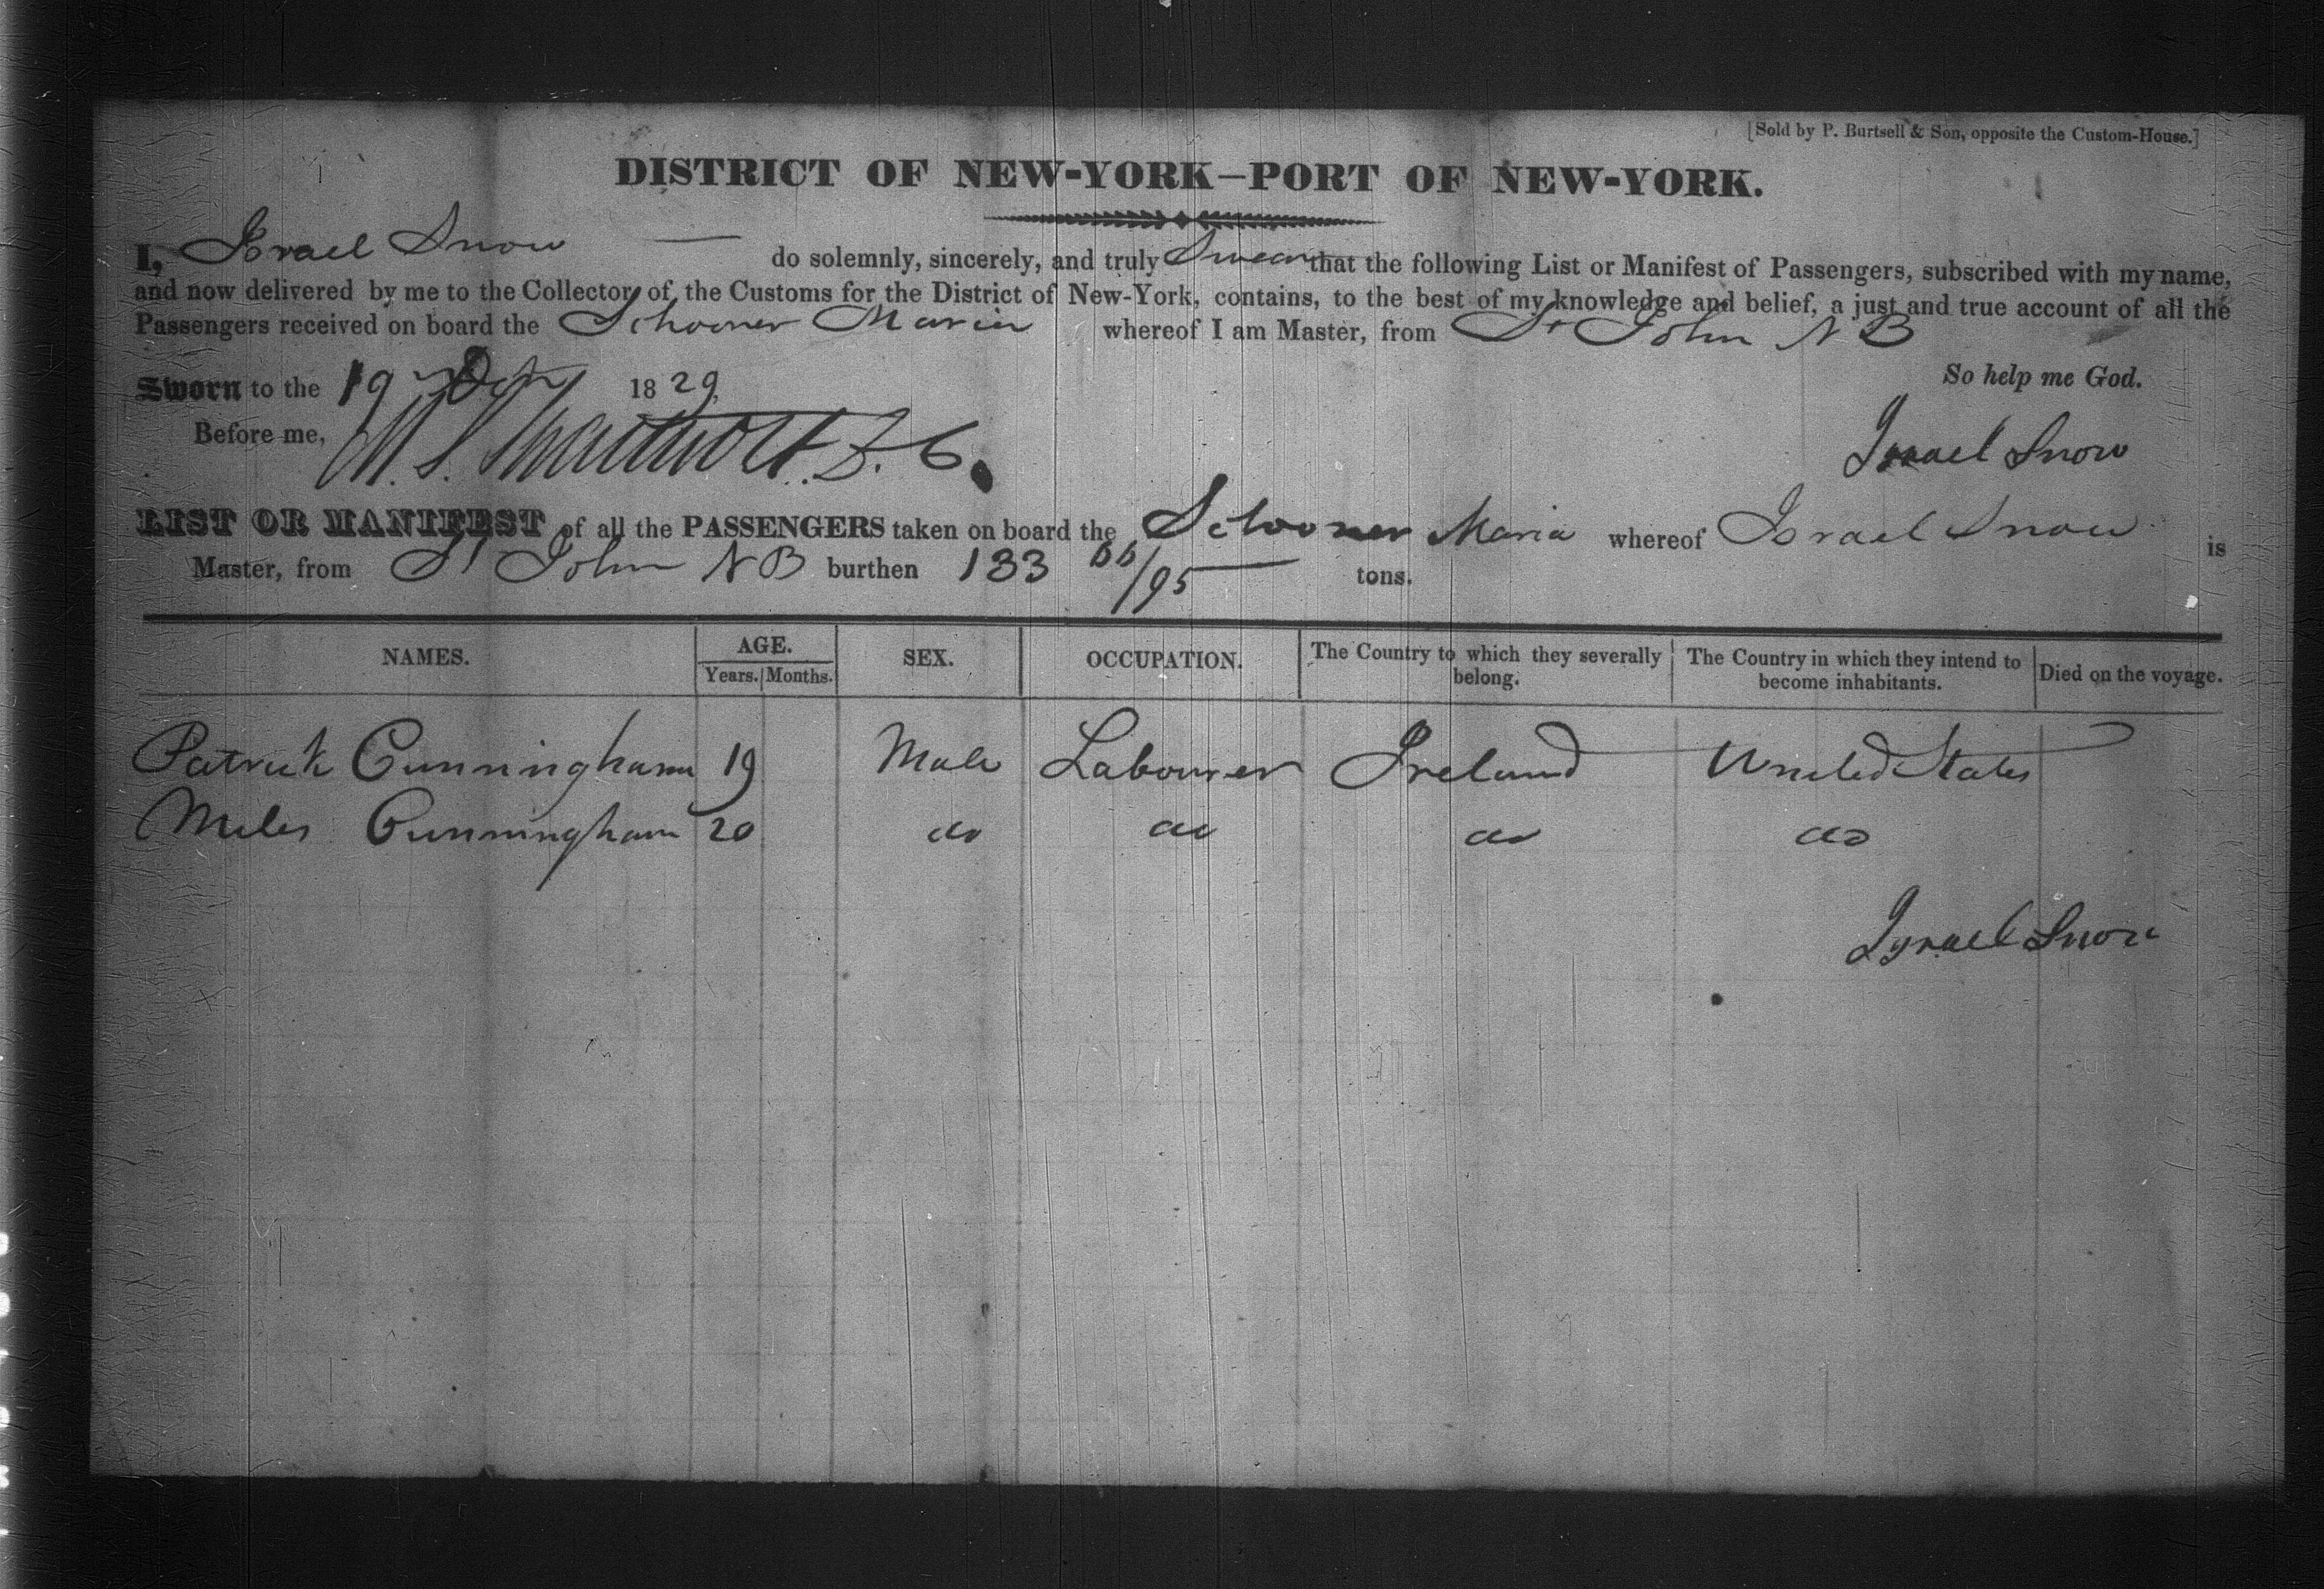 [Sold by P. Burtsell & Son, opposite the Custom-House.]
DISTRICT OF NEW-YORK—PORT OF NEW-YORK.
I, Israel Snow do solemnly, sincerely, and truly Swear that the following List or Manifest of Passengers, subscribed with my name,
and now delivered by me to the Collector of the Customs for the District of New-York, contains, to the best of my knowledge and belief, a just and true account of all the
Passengers received on board the Schooner Maria whereof I am Master, from St John N B
So help me God.
Sworn to the 19 1829,
Before me,
Israel Snow
LIST OR MANIFEST of all the PASSENGERS taken on board the Schooner Maria whereof Israel Snow is
Master, from St John N B burthen 133 66/95 tons.
NAMES. AGE. SEX. OCCUPATION. The Country to which they severally belong. The Country in which they intend to become inhabitants. Died on the voyage.
Years. Months.
Patrick Cunningham 19 Male Labourer Ireland United States
Miles Cunningham 20 do do do do
Israel Snow